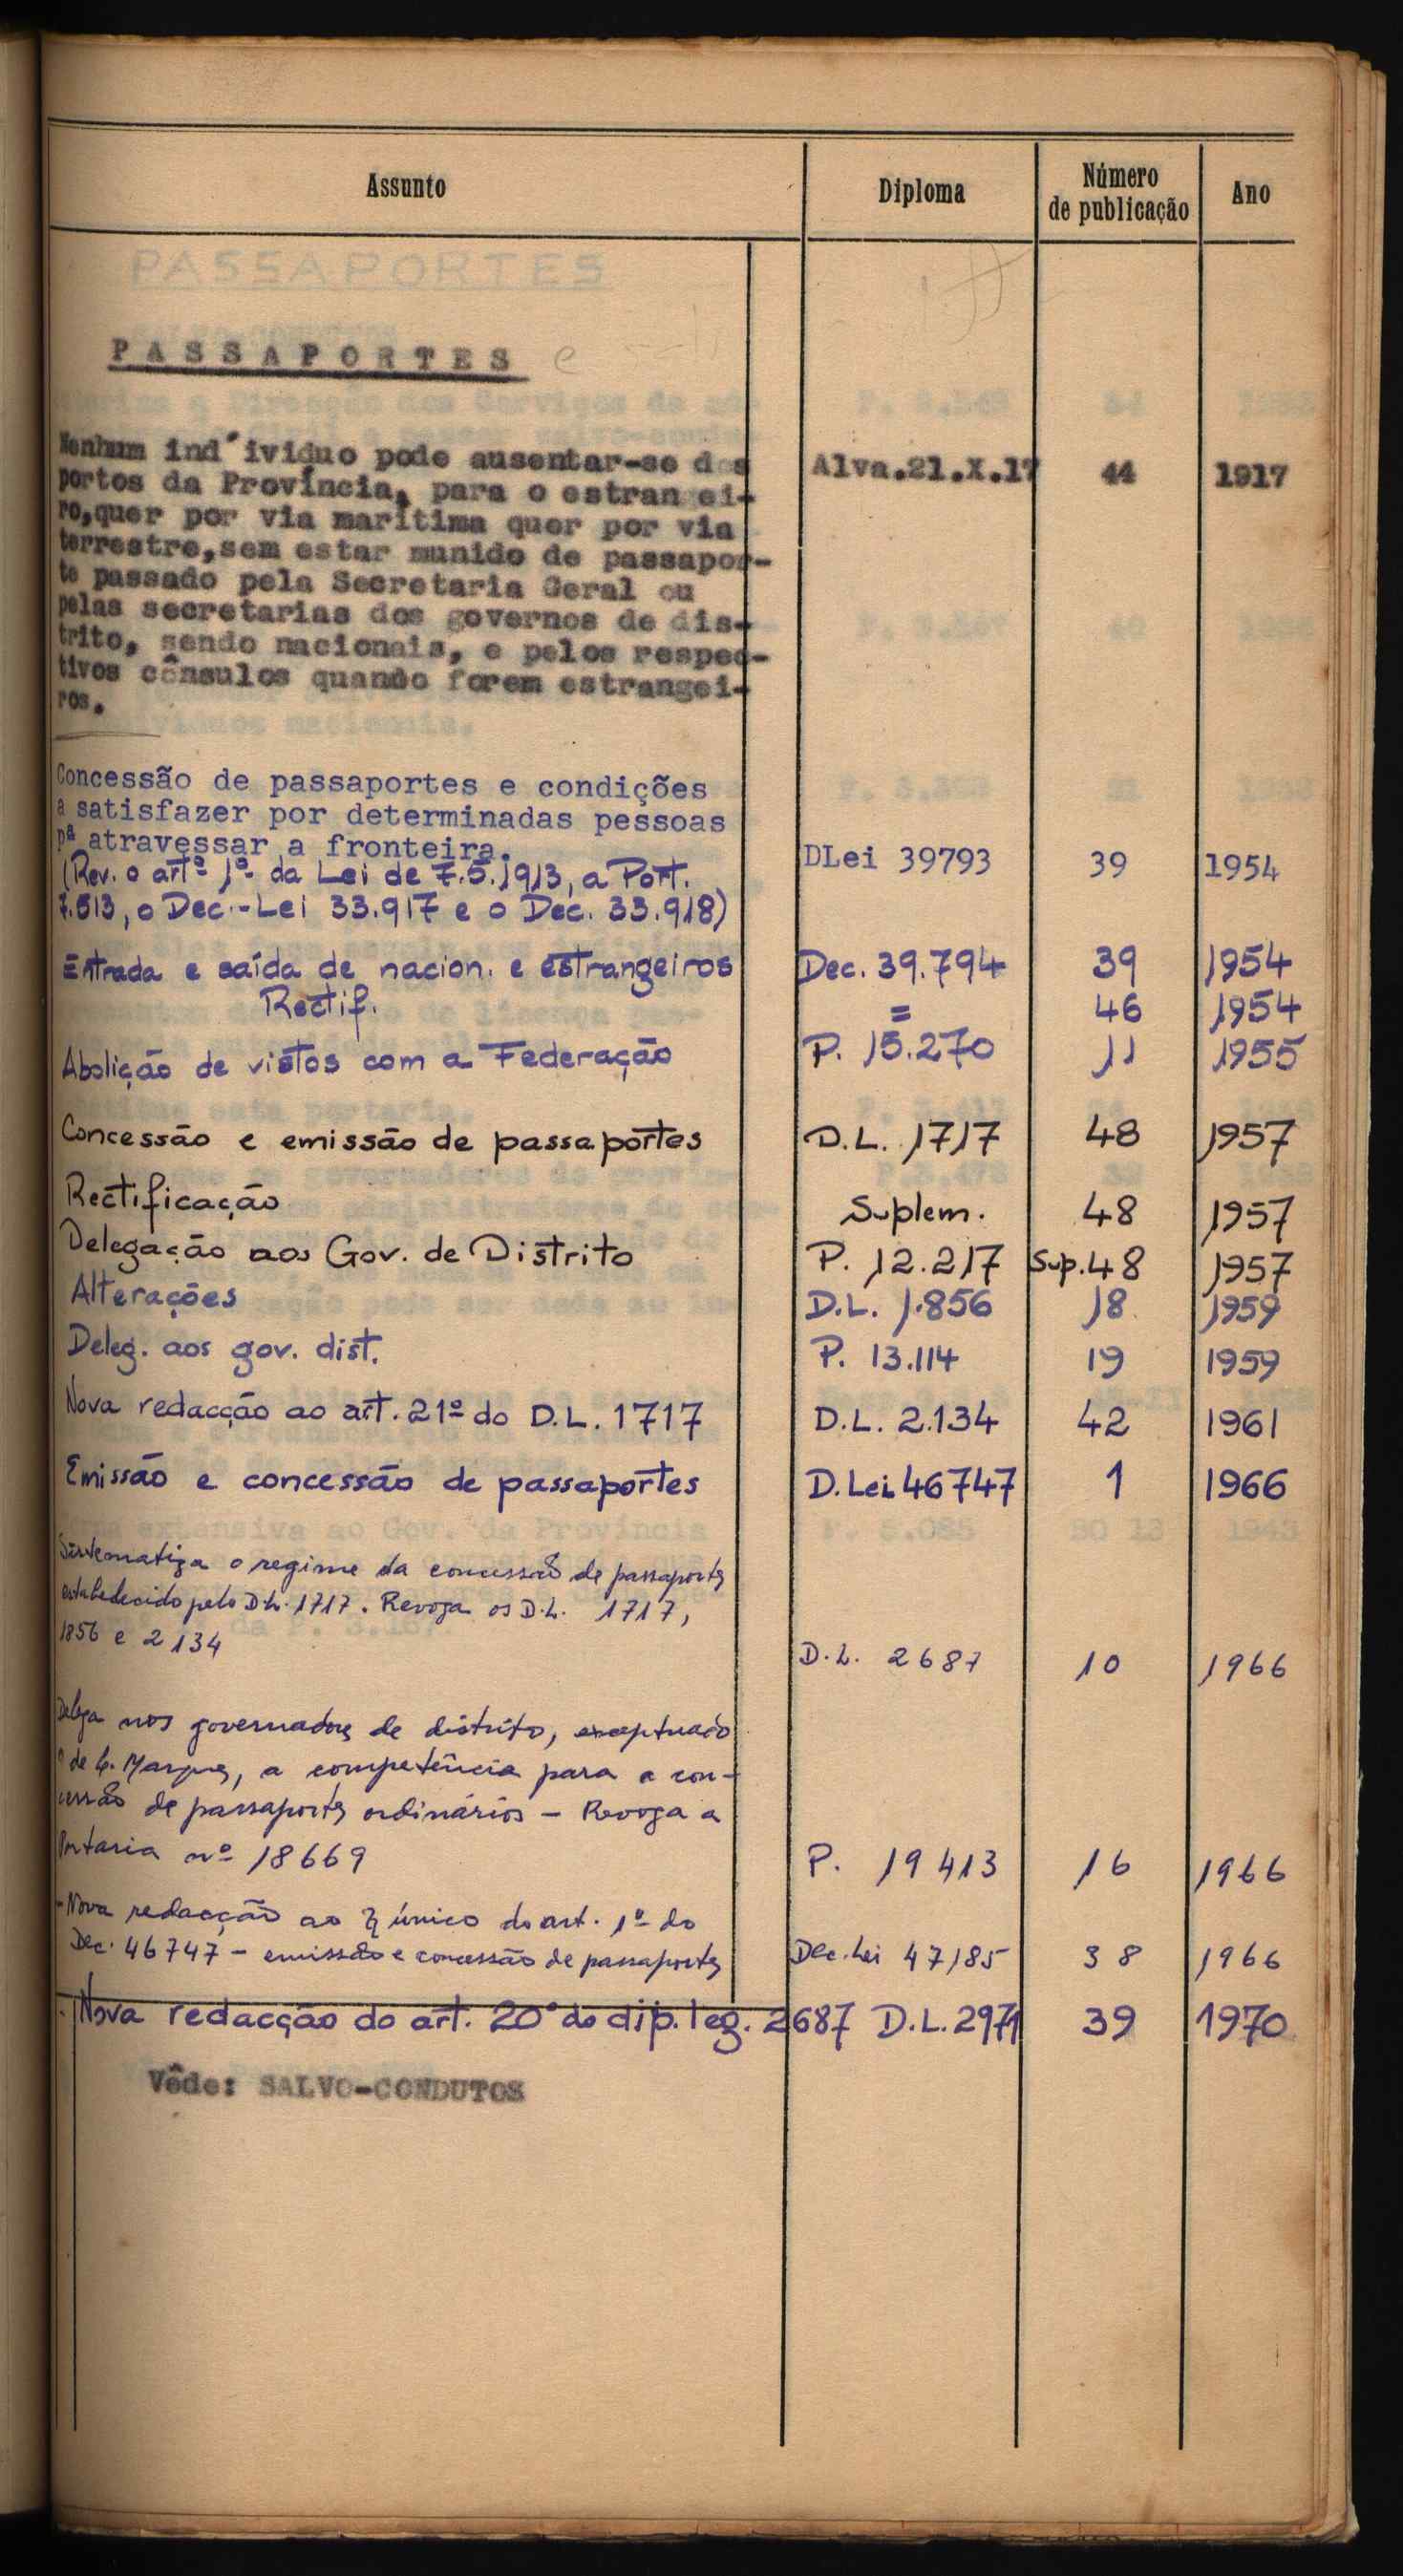 Assunto Diploma Número de publicação Ano
PASSAPORTES
PASSAPORTES e
Nenhum ind´ividuo pode ausentar-se dos Alva.21.X.17 44 1917
portos da Província, para o estrangei-
ro,quer por via marítima quer por via
terrestre,sem estar munido de passapor-
te passado pela Secretaria Geral ou
pelas secretarias dos governos de dis-
trito, sendo nacionais, e pelos respec-
tivos cônsulos quando forem estrangei-
ros.
Concessão de passaportes e condições
a satisfazer por determinadas pessoas
pª atravessar a fronteira. DLei 39793 39 1954
(Rev. o artº 1º da Lei de 7.5.1913, a Port.
7.513, o Dec.-Lei 33.917 e o Dec. 33.918)
Entrada e saída de nacion. e estrangeiros Dec. 39.794 39 1954
Rectif. = 46 1954
Abolição de vistos com a Federação P. 15.270 11 1955
Concessão e emissão de passaportes D.L. 1717 48 1957
Rectificação Suplem. 48 1957
Delegação aos Gov. de Distrito P. 12.217 Sup.48 1957
Alterações D.L. 1.856 18 1959
Deleg. aos gov. dist. P. 13.114 19 1959
Nova redacção ao art. 21º do D.L. 1717 D.L. 2.134 42 1961
Emissão e concessão de passaportes D.Lei 46747 1 1966
Sistematiza o regime da concessão de passaportes
estabelecido pelo D.L. 1717. Revoga os D.L. 1717,
1856 e 2134 D.L. 2687 10 1966
Delega nos governadores de distrito, exceptuado
o de L. Marques, a competência para a con-
cessão de passaportes ordinários - Revoga a
Portaria nº 18669 P. 19413 16 1966
- Nova redacção ao § único do art. 1º do
Dec. 46747 - emissão e concessão de passaportes Dec.Lei 47185 38 1966
- Nova redacção do art. 20º do dip. leg. 2687 D.L. 2971 39 1970
Vêde: SALVO-CONDUTOS